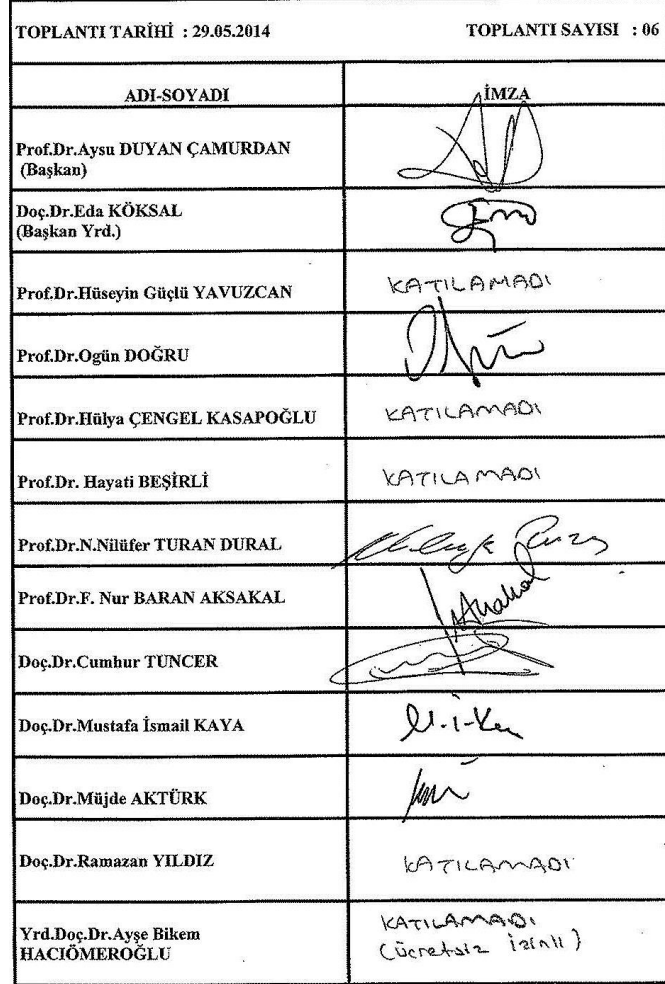 TOPLANTI TARİHİ : 29.05.2014 TOPLANTI SAYISI : 06
ADI-SOYADI İMZA
Prof.Dr.Aysu DUYAN ÇAMURDAN
(Başkan)
Doç.Dr.Eda KÖKSAL
(Başkan Yrd.)
Prof.Dr.Hüseyin Güçlü YAVUZCAN KATILAMADI
Prof.Dr.Ogün DOĞRU
Prof.Dr.Hülya ÇENGEL KASAPOĞLU KATILAMADI
Prof.Dr. Hayati BEŞİRLİ KATILAMADI
Prof.Dr.N.Nilüfer TURAN DURAL
Prof.Dr.F. Nur BARAN AKSAKAL
Doç.Dr.Cumhur TUNCER
Doç.Dr.Mustafa İsmail KAYA
Doç.Dr.Müjde AKTÜRK
Doç.Dr.Ramazan YILDIZ KATILAMADI
Yrd.Doç.Dr.Ayşe Bikem KATILAMADI
HACIÖMEROĞLU (Ücretsiz İzinli)